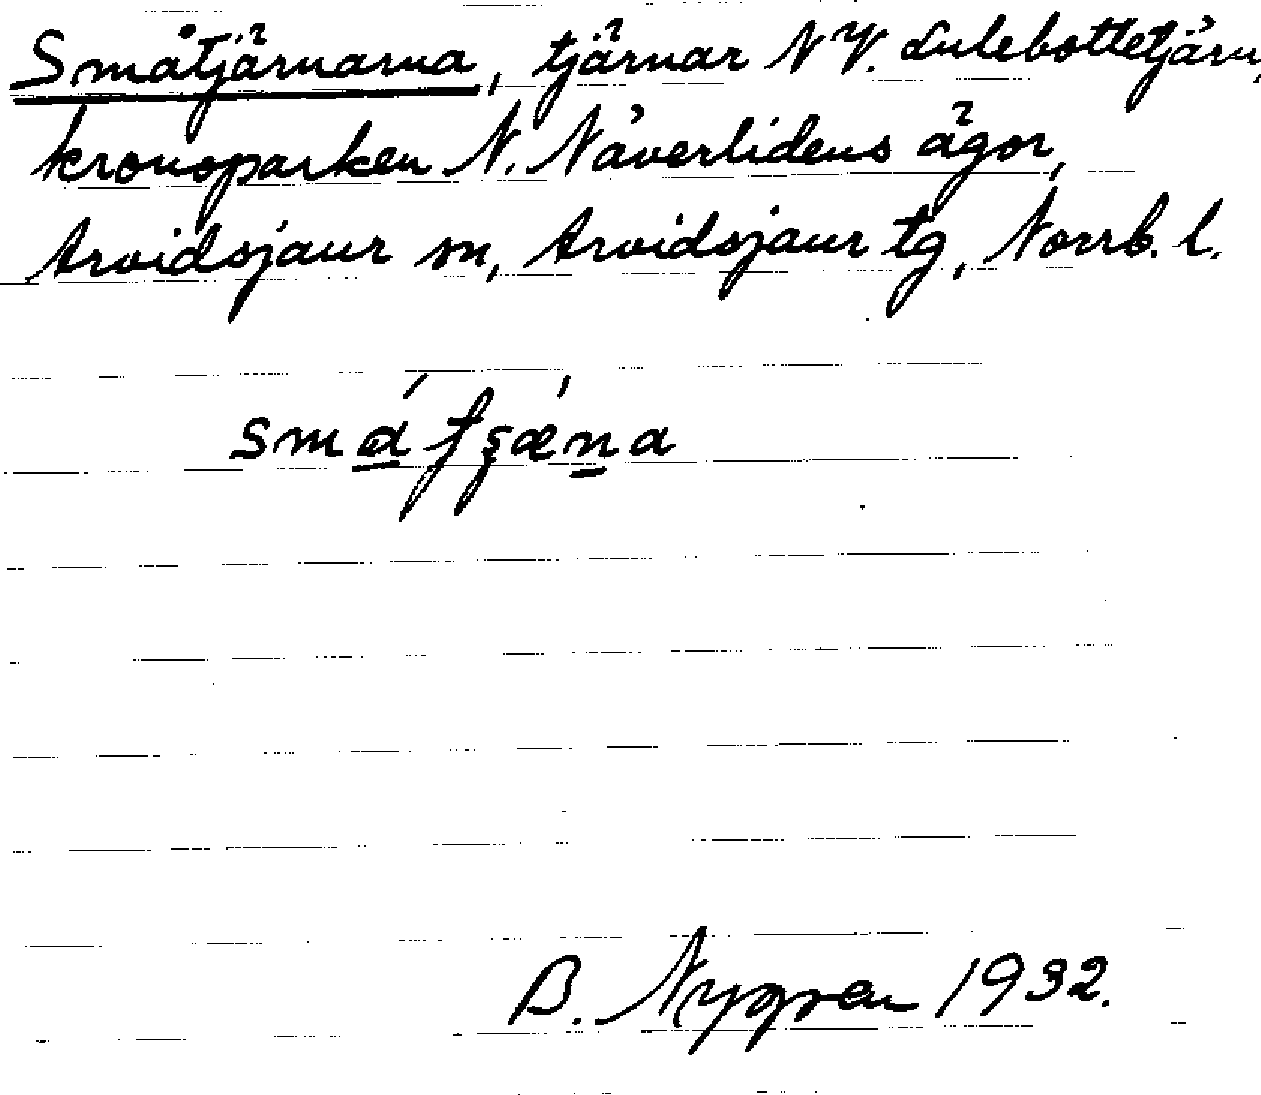 Småtjärnarna, tjärnar NV. Lulebottetjärn,
kronoparken N. Näverlidens ägor,
Arvidsjaur sn, Arvidsjaur tg, Norrb. l.
B. Nygren 1932.